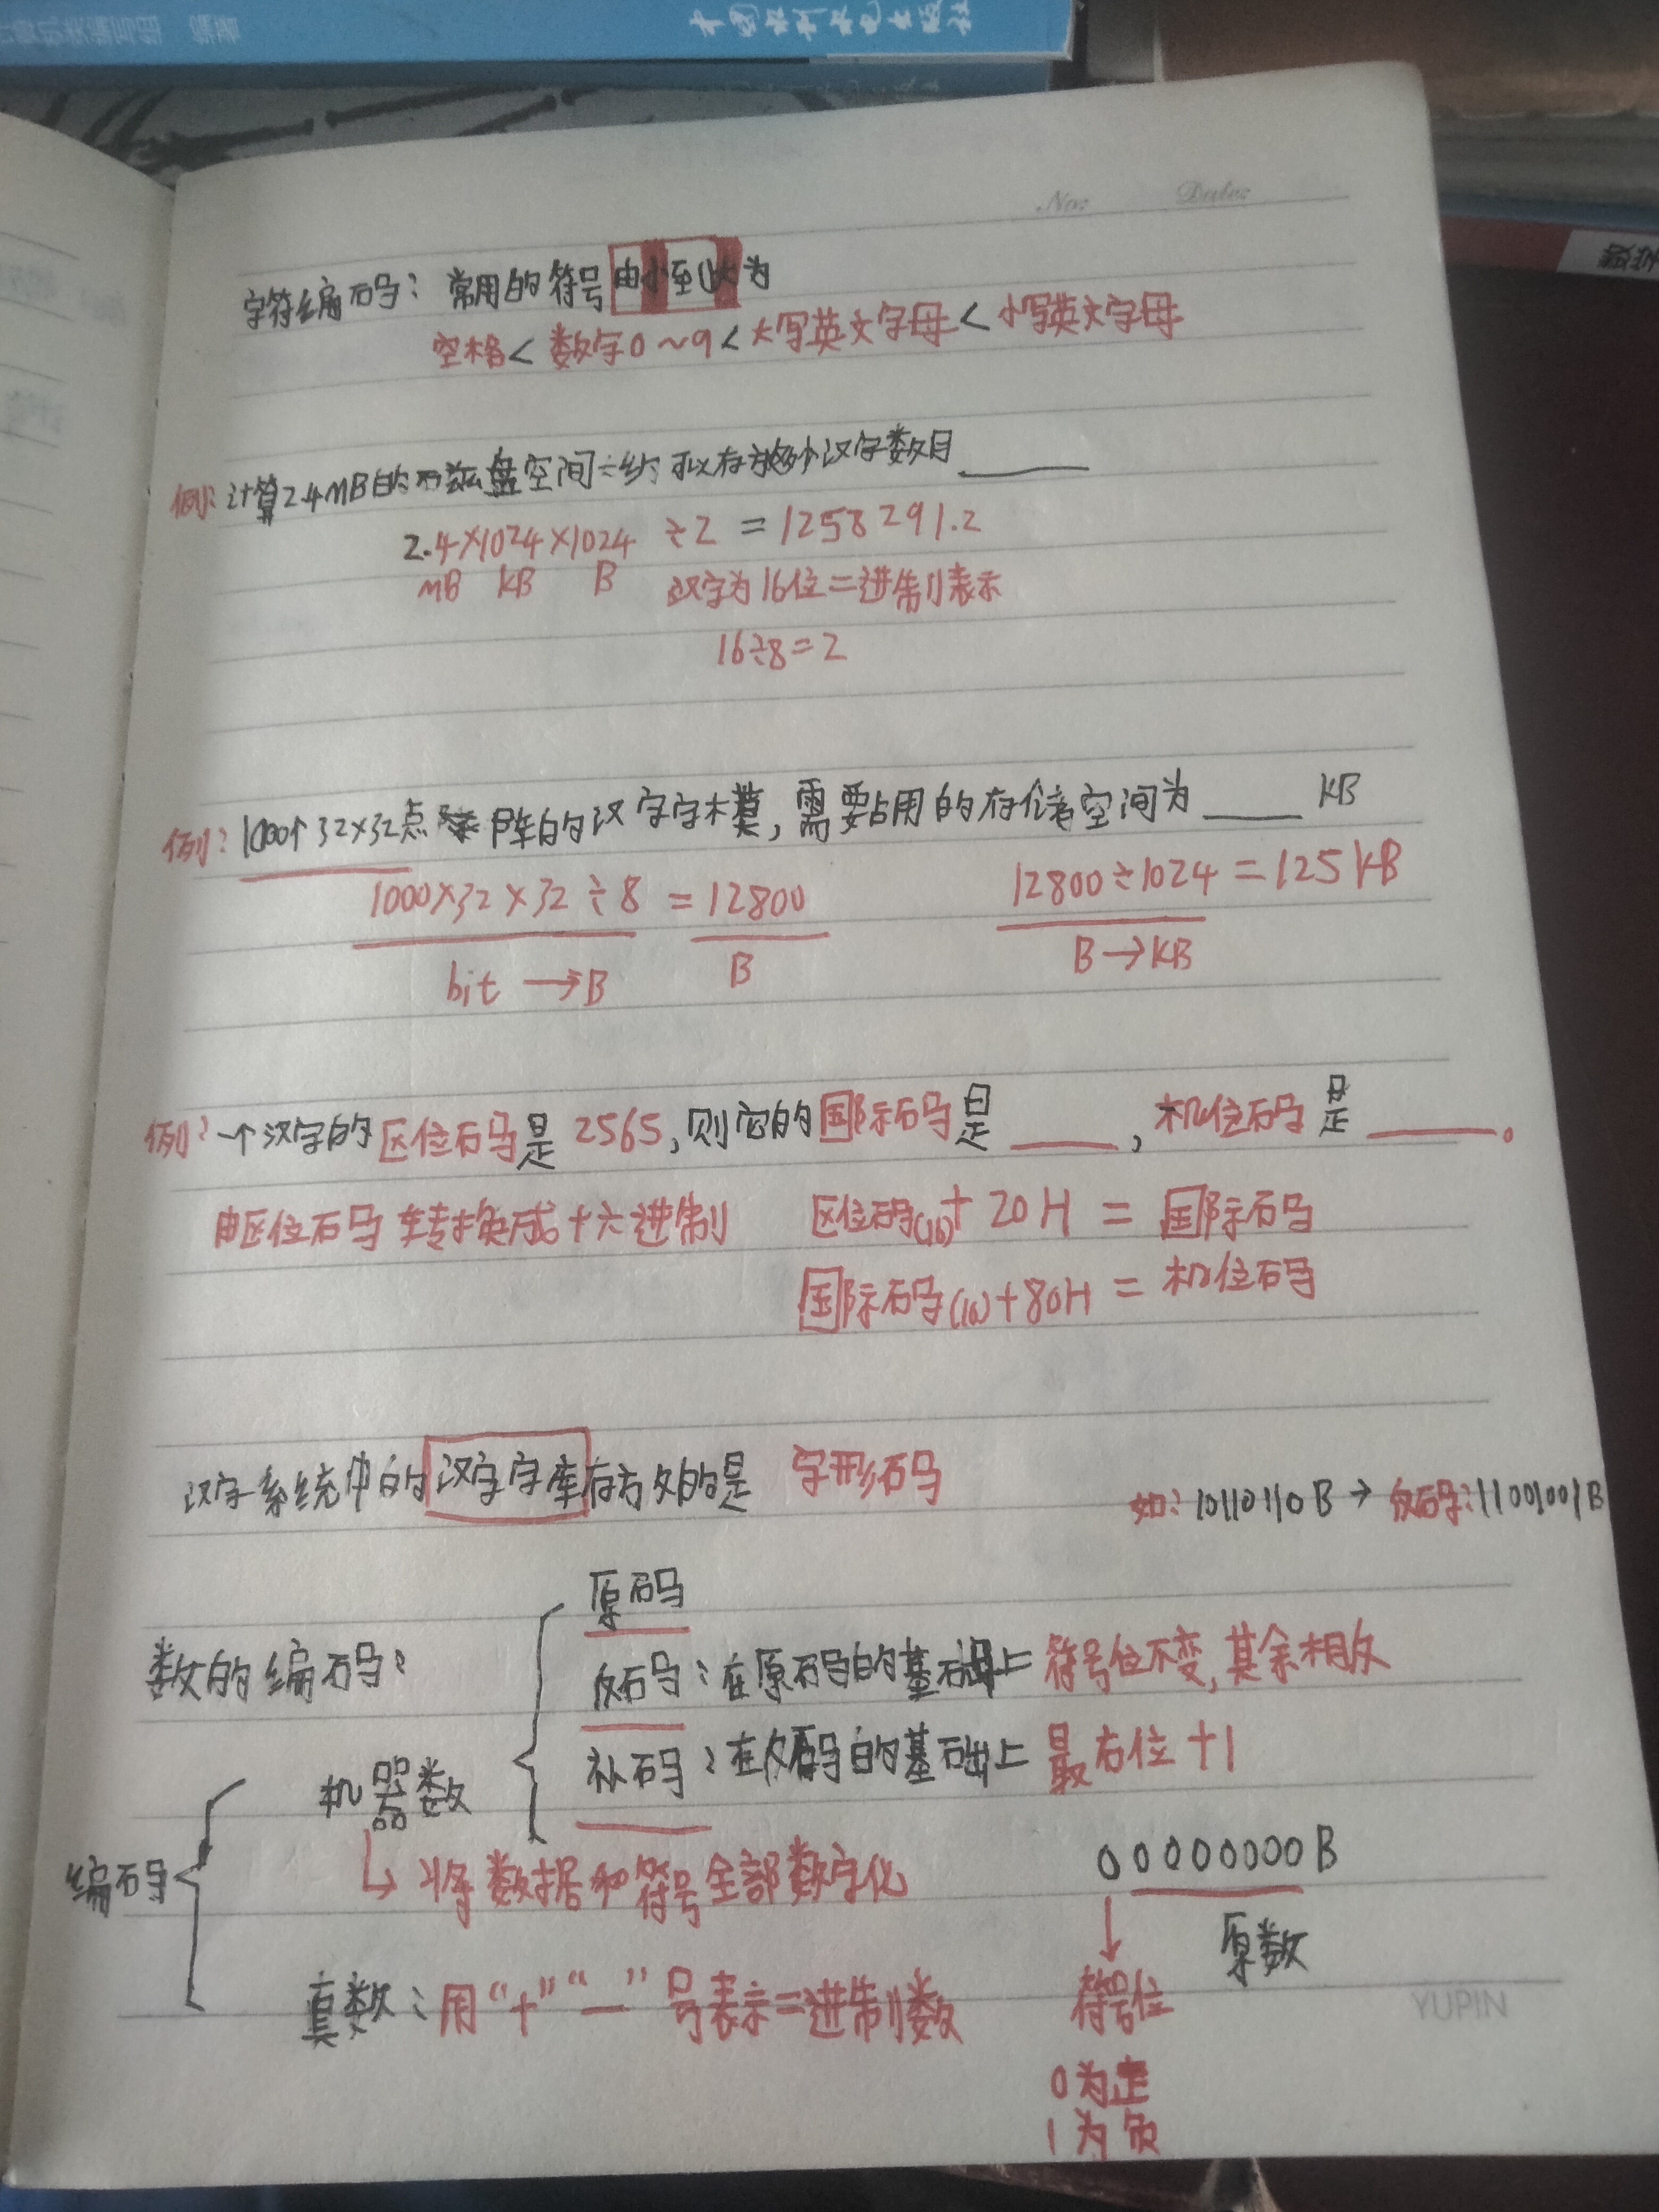 中国水利水电出版社
No: Date:
字符编码: 常用的符号由小至大为
空格 < 数字0~9 < 大写英文字母 < 小写英文字母
例: 计算2.4MB的磁盘空间约可以存放多少汉字数目____
2.4×1024×1024 ÷2 = 1258291.2
MB KB B 汉字为16位二进制表示
16÷8=2
例: 1000个32×32点阵的汉字字模,需要占用的存储空间为____ KB
1000×32×32÷8 = 12800 12800÷1024=125KB
bit →B B B→KB
例: 一个汉字的区位码是2565,则它的国际码是____,机位码是____。
由区位码转换成十六进制 区位码(16)+20H = 国际码
国际码(16)+80H = 机位码
汉字系统中的汉字字库存放的是 字形码
如: 10110110B → 反码: 11001001B
数的编码:
原码
反码: 在原码的基础上符号位不变,其余相反
补码: 在反码的基础上最右位+1
机器数
编码
↳ 将数据和符号全部数字化
00000000B
原数
真数: 用“+”“—”号表示二进制数
符号位
0为正
1为负
YUPIN